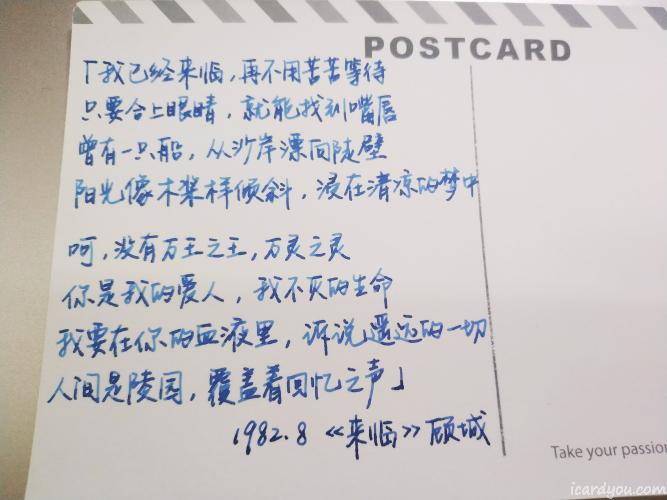 POSTCARD
「我已经来临，再不用苦苦等待
只要合上眼睛，就能找到嘴唇
曾有一只船，从沙岸漂向陡壁
阳光像木桨样倾斜，浸在清凉的梦中
呵，没有万王之王，万灵之灵
你是我的爱人，我不灭的生命
我要在你的血液里，诉说遥远的一切
人间是陵园，覆盖着回忆之声」
1982.8 《来临》顾城
Take your passion
icardyou.com